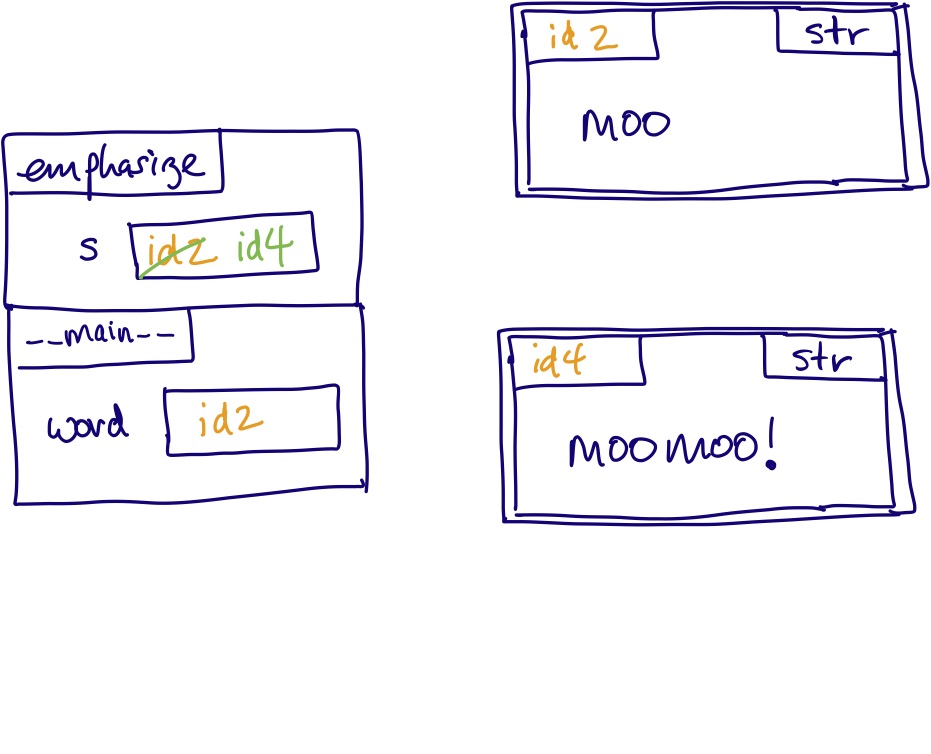 emphasize
s id2 id4
__main__
word id2
id2 str
moo
id4 str
moomoo!